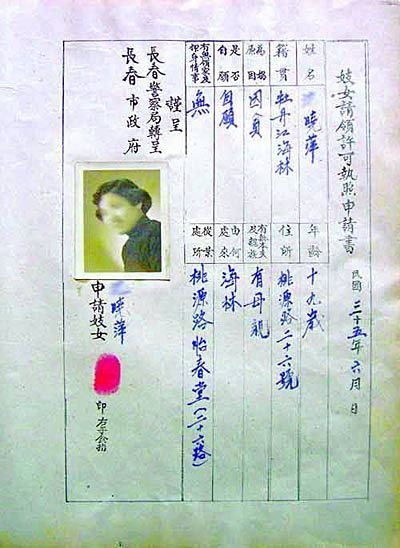 妓女請領許可執照申請書
民國三十五年六月 日
姓名 曉萍 年齡 十九歲
籍貫 牡丹江海林 住所 桃源路二十六號
為娼原因 因貧 有母親
是否自願 自願 由何處來 海林
有無領家及押身情事 無 從業處所 桃源路怡春堂
謹呈
長春警察局轉呈
長春市政府
申請妓女 曉萍 印